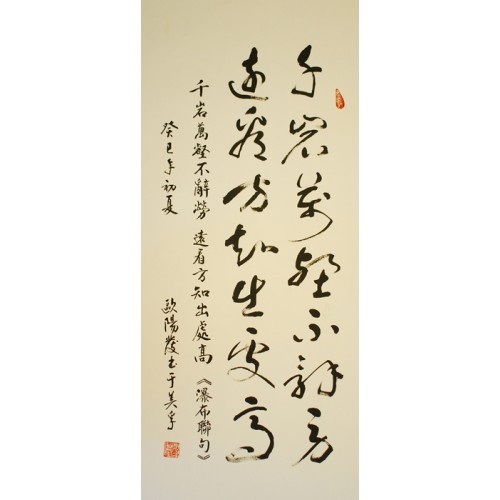 千岩萬壑不辞劳
遠看方知出處高
千岩萬壑不辭勞 遠看方知出處高《瀑布聯句》
癸巳年初夏 歐陽發书于美孚